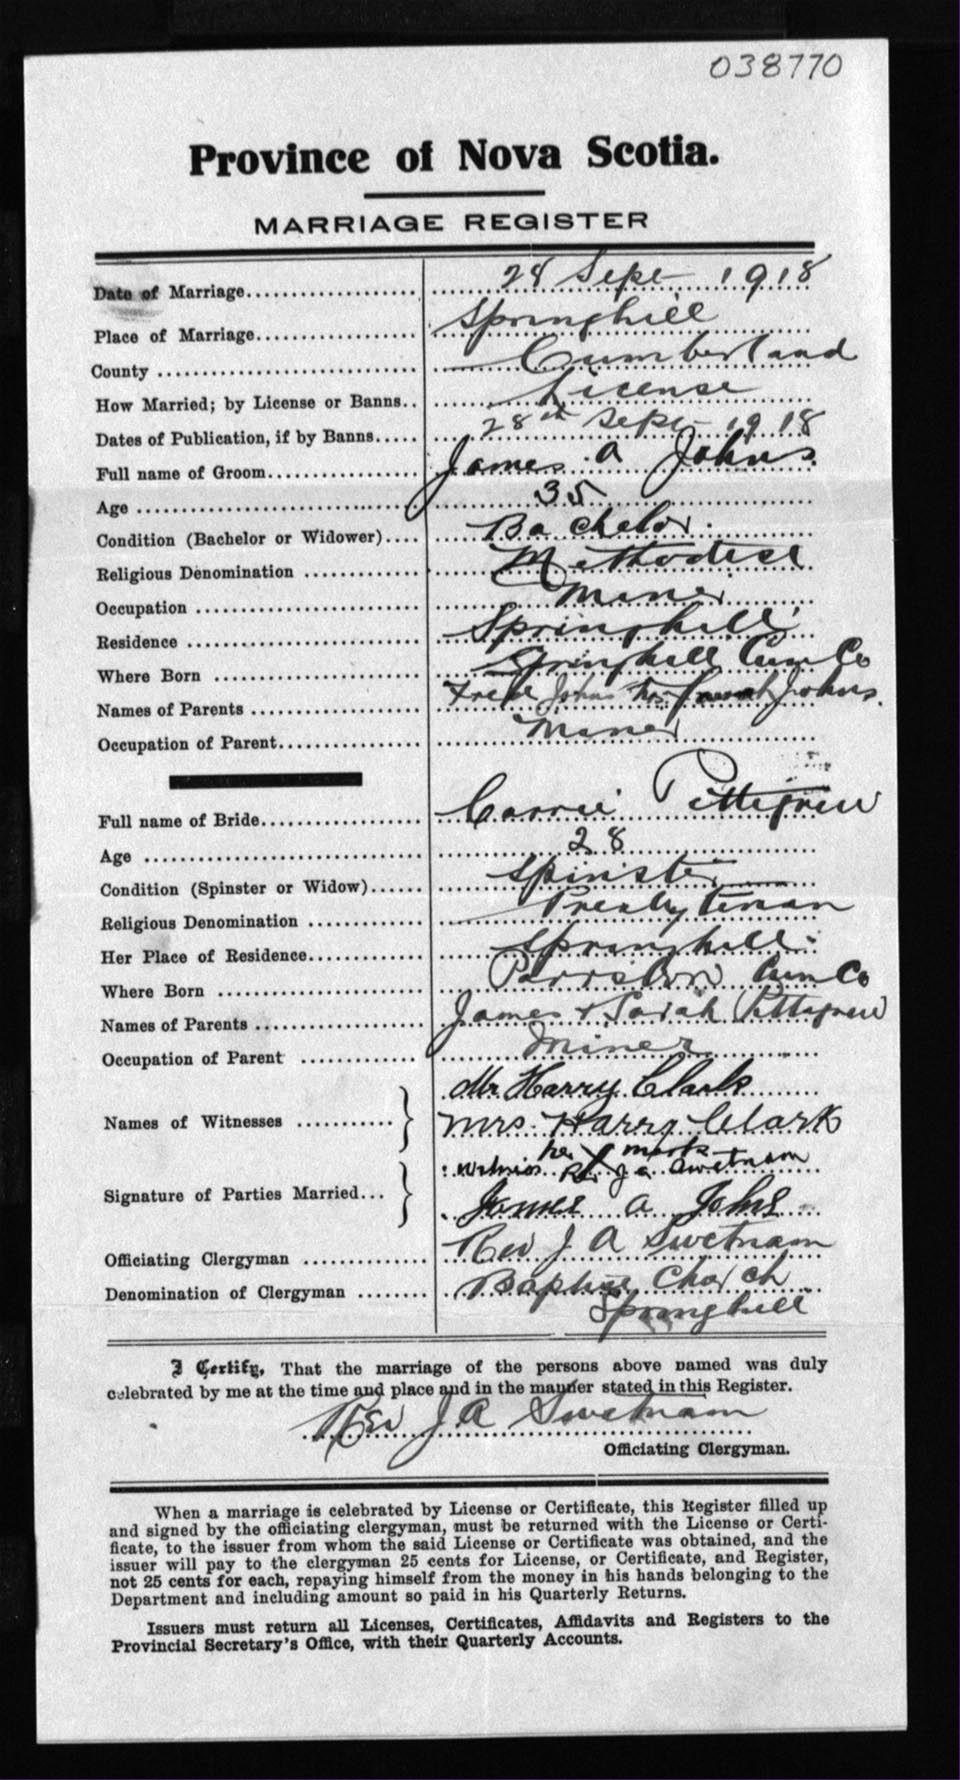 038770
Province of Nova Scotia.
MARRIAGE REGISTER
Date of Marriage 28 Sept 1918
Place of Marriage Springhill
County Cumberland
How Married; by License or Banns License
Dates of Publication, if by Banns 28th Sept 1918
Full name of Groom James A Johns
Age 35
Condition (Bachelor or Widower) Bachelor.
Religious Denomination Methodist
Occupation Miner
Residence Springhill
Where Born Springhill Cum Co
Names of Parents Fred Johns Johns.
Occupation of Parent Miner
Full name of Bride Carrie Pittigrew
Age 28
Condition (Spinster or Widow) Spinster
Religious Denomination Presbyterian
Her Place of Residence Springhill
Where Born Parrsboro Cum Co
Names of Parents James & Sarah Pittigrew
Occupation of Parent Miner
Mr Harry Clark
Names of Witnesses Mrs. Harry Clark
her X mark
Witness Rev J A Swetnam
Signature of Parties Married... James A Johns
Officiating Clergyman Rev J A Swetnam
Denomination of Clergyman Baptist Church
Springhill
I Certify, That the marriage of the persons above named was duly
celebrated by me at the time and place and in the manner stated in this Register.
Rev J A Swetnam
Officiating Clergyman.
When a marriage is celebrated by License or Certificate, this Register filled up
and signed by the officiating clergyman, must be returned with the License or Certi-
ficate, to the issuer from whom the said License or Certificate was obtained, and the
issuer will pay to the clergyman 25 cents for License, or Certificate, and Register,
not 25 cents for each, repaying himself from the money in his hands belonging to the
Department and including amount so paid in his Quarterly Returns.
Issuers must return all Licenses, Certificates, Affidavits and Registers to the
Provincial Secretary's Office, with their Quarterly Accounts.